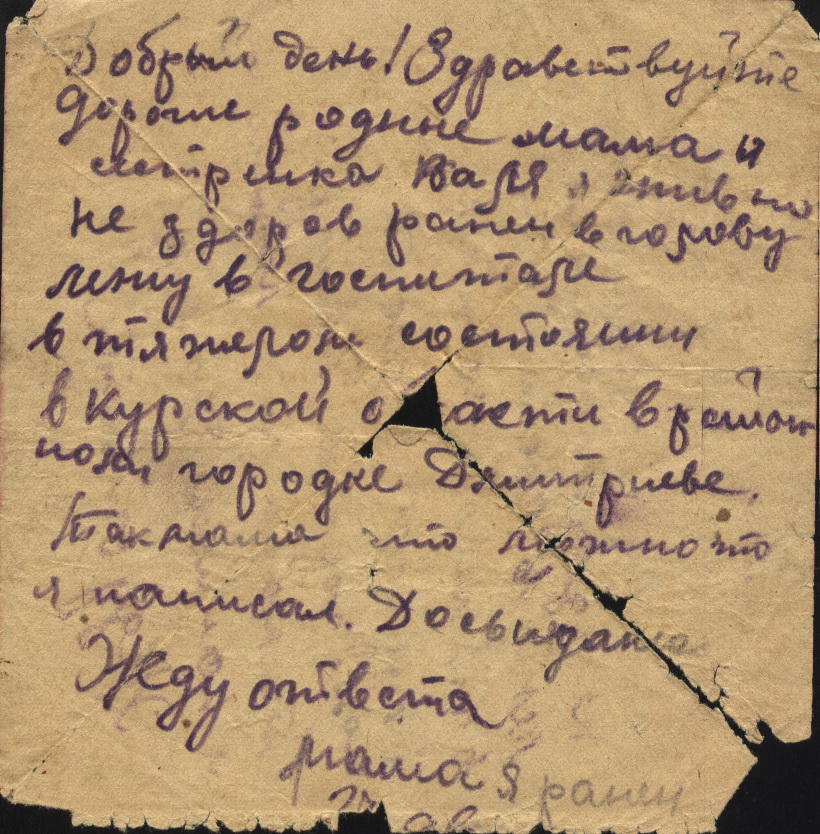 Добрый день! Здравствуйте
дорогие родные мама и
сестренка Валя я жив но
не здоров ранен в голову
лежу в госпитале
в тяжелом состоянии
в Курской области в район
ном городке Дмитриеве.
Так мама что можно то
я написал. Досвидания
Жду ответа
мама я ранен